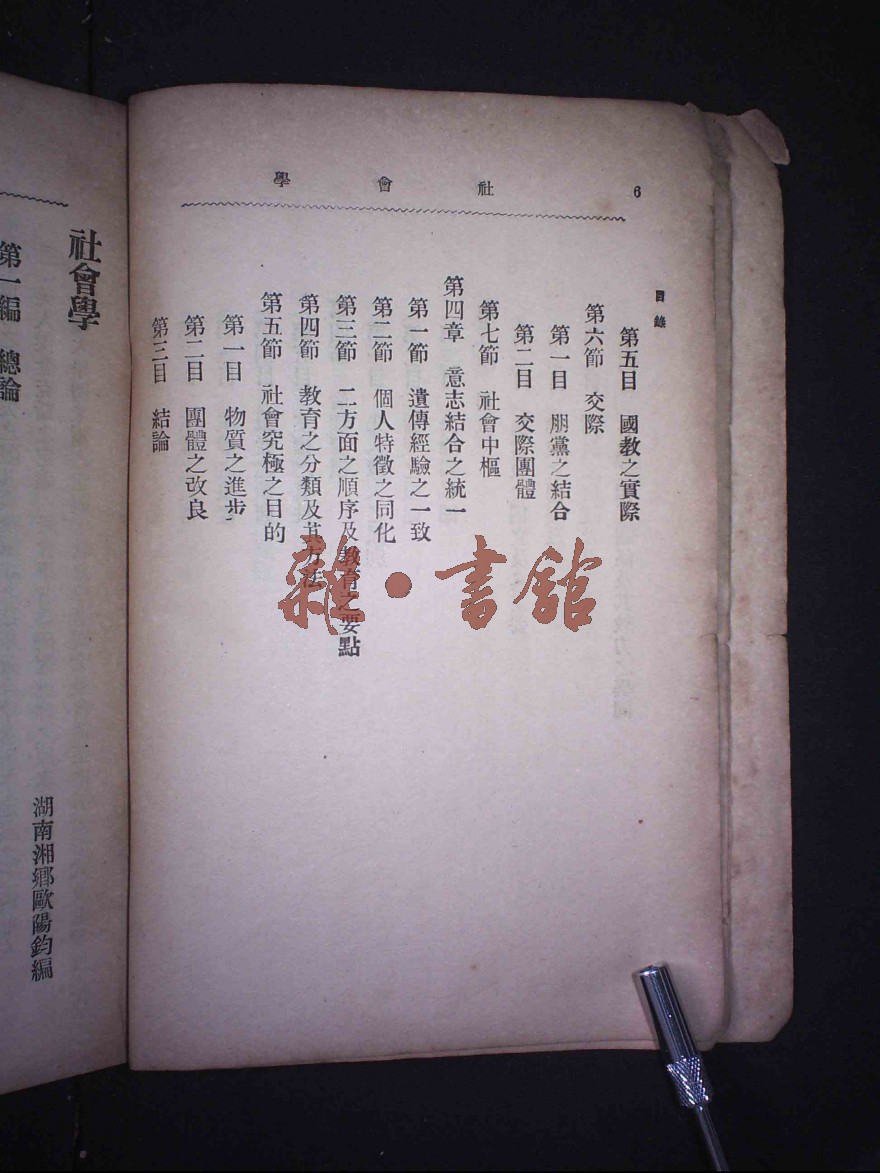 社會學
6
目錄
第五目 國教之實際
第六節 交際
第一目 朋黨之結合
第二目 交際團體
第七節 社會中樞
第四章 意志結合之統一
第一節 遺傳經驗之一致
第二節 個人特徵之同化
第三節 二方面之順序及教育之要點
第四節 教育之分類及其方法
第五節 社會究極之目的
第一目 物質之進步
第二目 團體之改良
第三目 結論
社會學
湖南湘鄉歐陽鈞編
第一編 總論
雜·書館